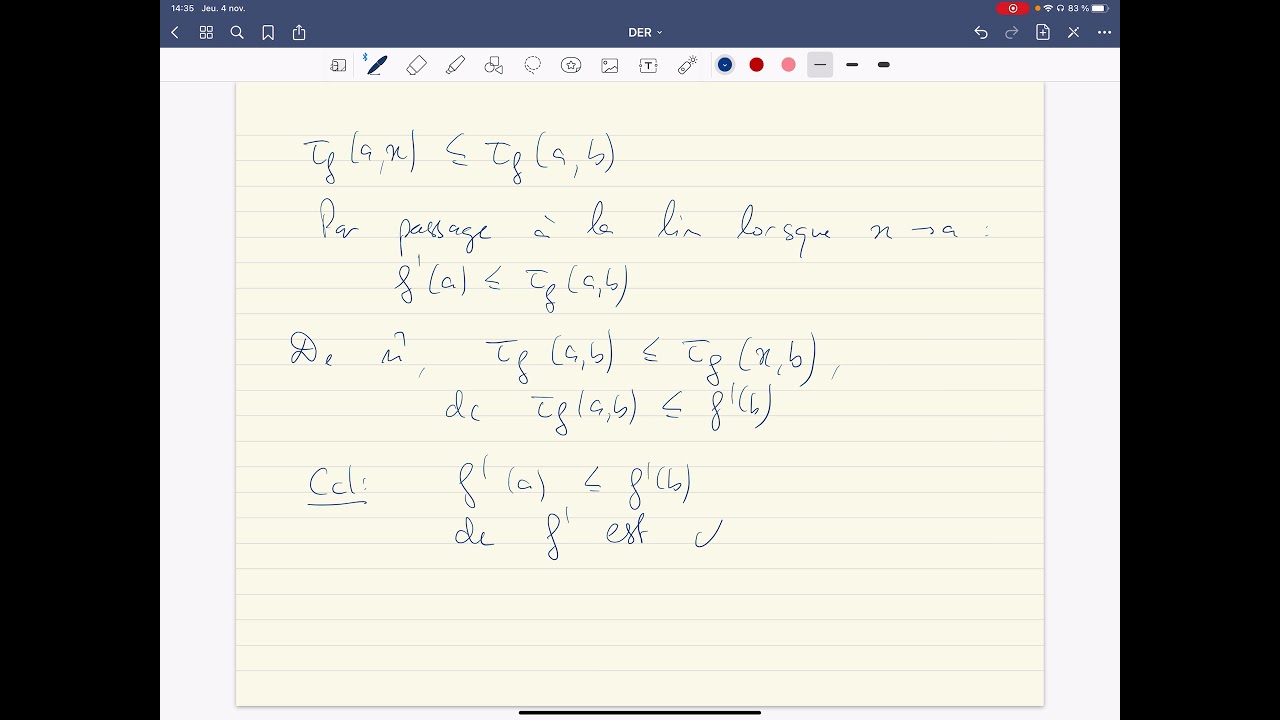 14:35 Jeu. 4 nov. 83 %
DER
T
τf(a,x) ≤ τf(a,b)
Par passage à la lim lorsque x → a :
f'(a) ≤ τf(a,b)
De m̂, τf(a,b) ≤ τf(x,b),
dc τf(a,b) ≤ f'(b)
Ccl: f'(a) ≤ f'(b)
dc f' est